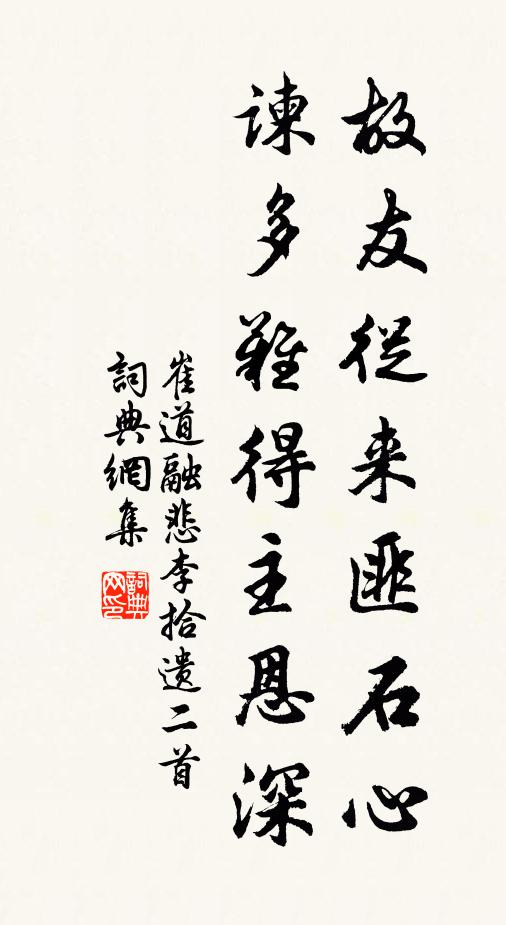 故友從来匪石心
諫多難得主恩深
崔道融悲李拾遺二首
詞典網集
詞典网印